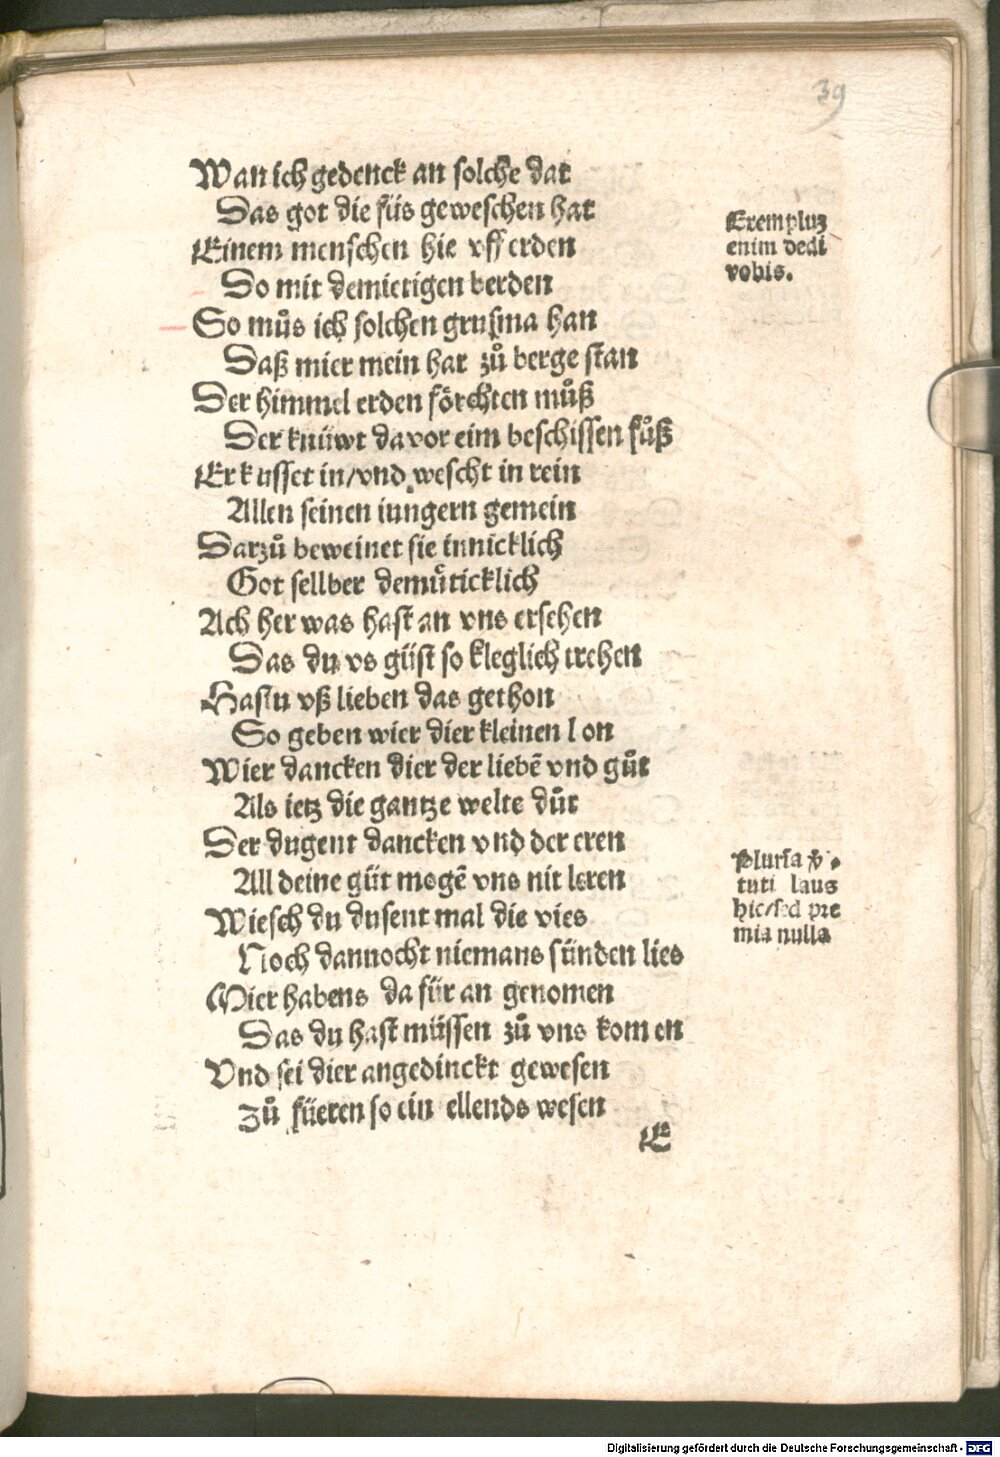 39
Wan ich gedenck an solche dat
Das got die füs geweschen hat
Einem menschen hie vff erden
So mit demietigen berden
So můs ich solchen grusma han
Daß mier mein har zů berge stan
Der himmel erden förchten můß
Der knüwt da vor eim beschissen fůß
Er kusset in/vnd wescht in rein
Allen seinen iungern gemein
Darzů beweinet sie innicklich
Got sellber demůticklich
Ach her was hast an vns ersehen
Das du vs güst so kleglich trehen
Hastu vß lieben das gethon
So geben wier dier kleinen lon
Wier dancken dier der liebē vnd gůt
Als ietz die gantze welte důt
Der dugent dancken vnd der eren
All deine güt mogē vns nit leren
Wiesch du dusent mal die vies
Noch dannocht niemans sünden lies
Wier habens da für an genomen
Das du hast müssen zů vns komen
Vnd sei dier angedinckt gewesen
Zů füeren so ein ellends wesen
E
Exempluz
enim dedi
vobis.
tuti laus
hic/sed pre
mia nulla
Digitalisierung gefördert durch die Deutsche Forschungsgemeinschaft - DFG